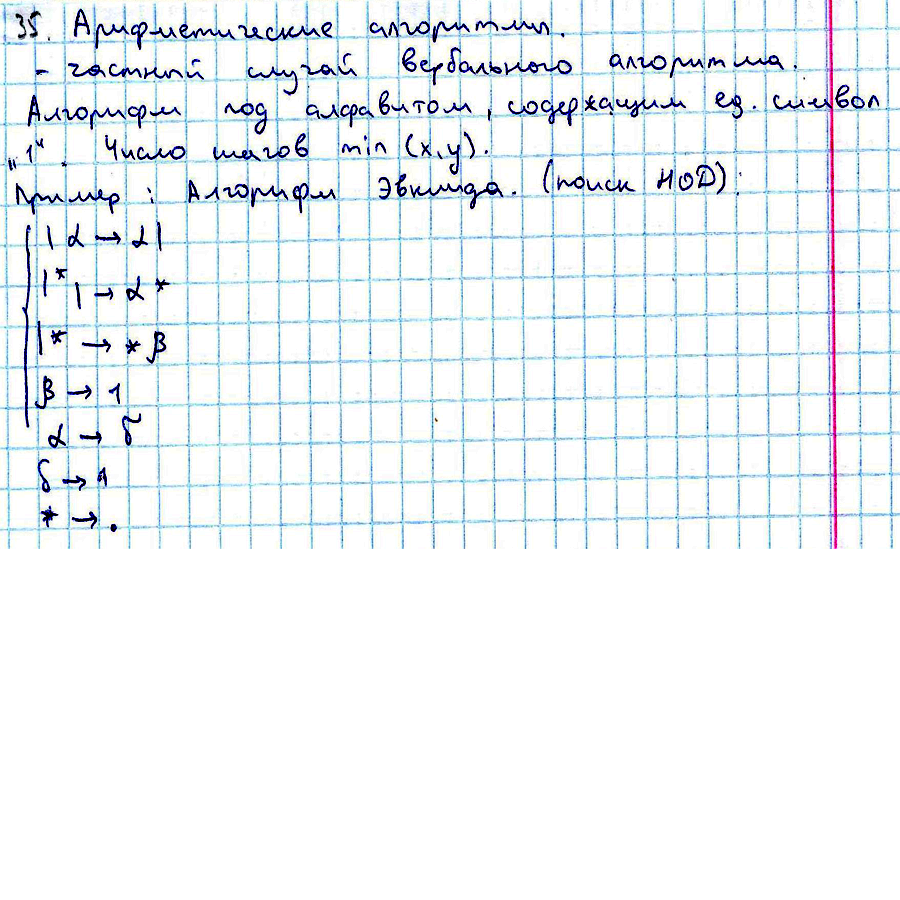 35. Арифметические алгоритмы.
- частный случай вербального алгоритма.
Алгорифм под алфавитом, содержащим ед. символ
„1“. Число шагов min (x,y).
Пример: Алгорифм Эвклида. (поиск НОД):
| α → α |
| * | → α *
| * → * β
β → 1
α → δ
δ → 1
* → .